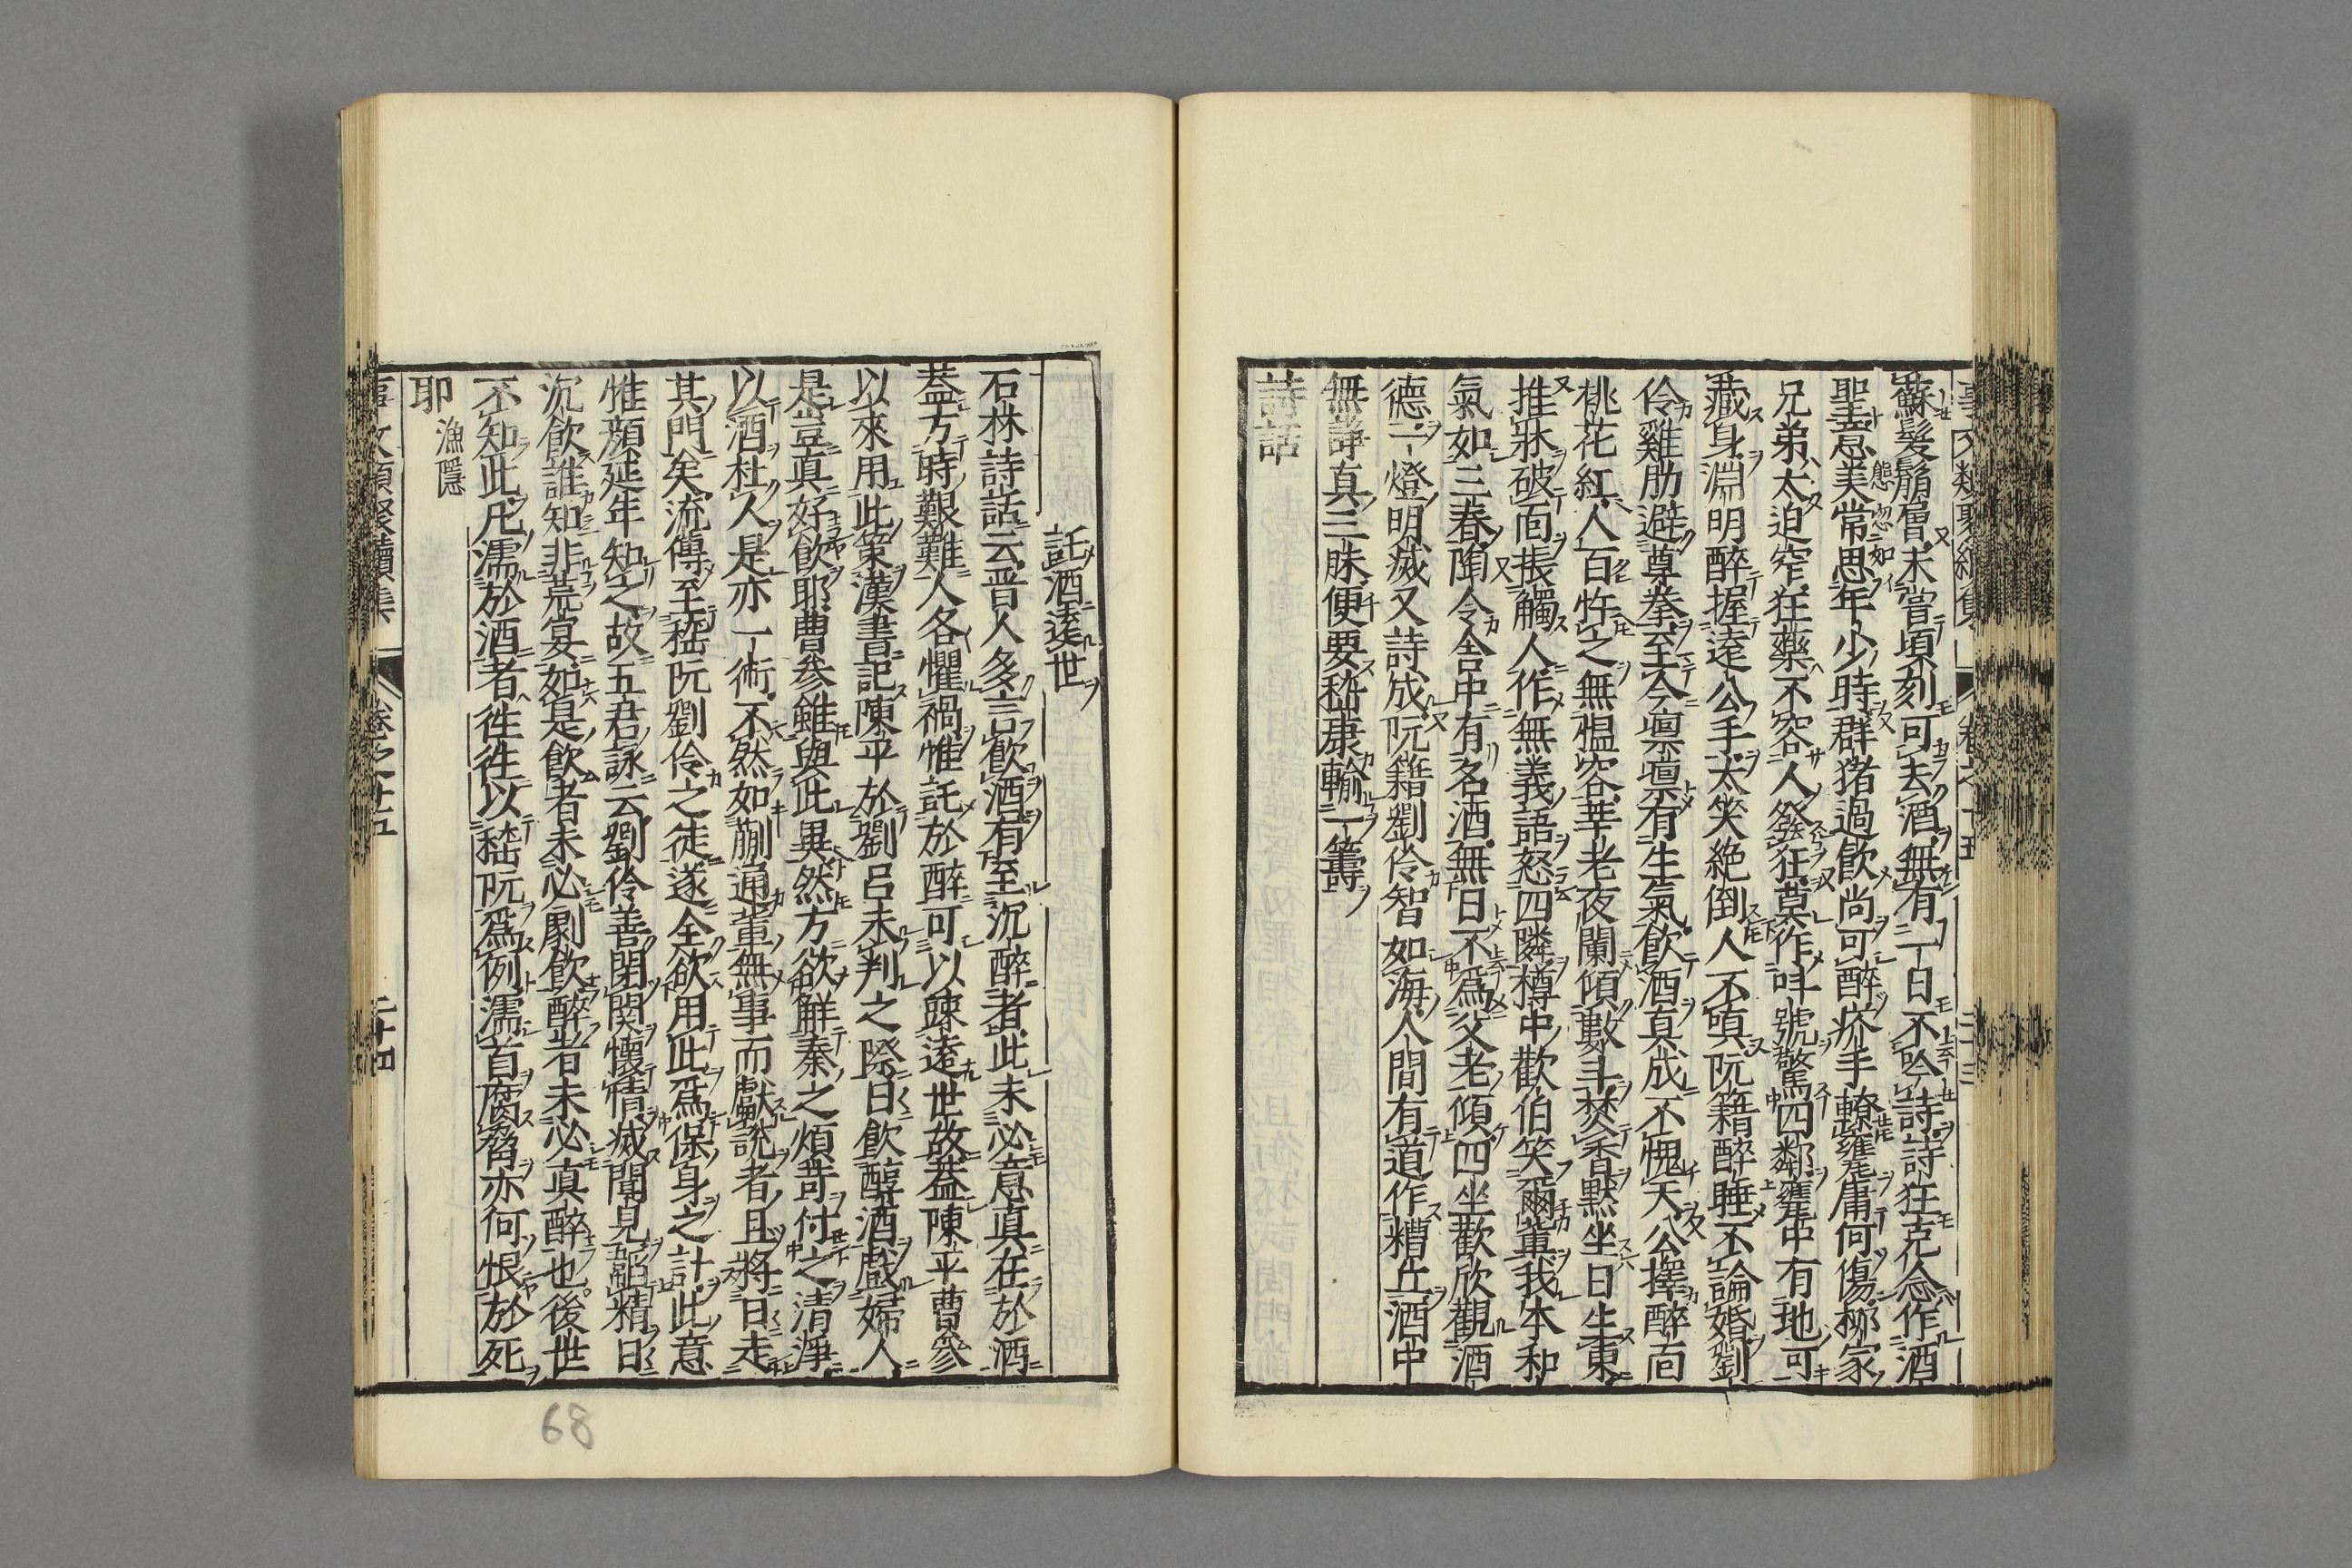 蘇髮鬅層未嘗頃刻可去酒無有一日不吟詩詩狂克念作酒
聖意態美常忽如思年少時群猪過飲尚可醉疥手轑甕庸何傷柳家
兄弟太迫窄狂藥不容人發狂莫作叫號驚四鄰甕中有地可
藏身淵明醉握遠公手太笑絶倒人不嗔阮籍醉睡不論婚劉
伶雞肋避尊拳至今凛凛有生氣飲酒真成不愧天公擇醉面
桃花紅人百忤之無慍容莘老夜闌傾數斗焚香默坐日生東
推牀破面棖觸人作無義語怒四隣樽中歡伯笑爾輩我本和
氣如三春陶令舎中有名酒無日不爲父老傾四坐歡欣觀酒
德一燈明滅又詩成阮籍劉伶智如海人間有道作糟丘酒中
無諍真三昧便要嵇康輸一籌
詩話
託酒逺世
石林詩話云晋人多言飲酒有至沉醉者此未必意真在於酒
葢方時艱難人各懼禍惟託於醉可以踈逺世故葢陳平曹參
以來用此策漢書記陳平於劉呂未判之際日飲醇酒戲婦人
是豈真好飲耶曹參雖與此異然方欲解秦之煩苛付之清淨
以酒杜人是亦一術不然如蒯通輩無事而獻說者且將日走
其門矣流傳至嵇阮劉伶之徒遂全欲用此爲保身之計此意
惟顔延年知之故五君詠云劉伶善閉関懷情滅聞見韜精日
沉飲誰知非荒宴如是飲者未必劇飲醉者未必真醉也後世
不知此凡濡於酒者徃徃以嵇阮爲例濡首腐脅亦何恨於死
耶漁隱
卷之十五
二十四